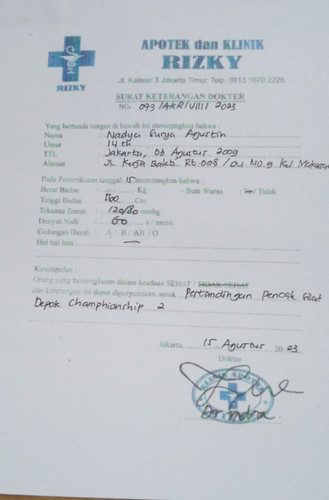 APOTEK dan KLINIK
RIZKY
RIZKY
Jl. Kalisari 3 Jakarta Timur, Telp. 0813 1070 2226
SURAT KETERANGAN DOKTER
NO. 093/AKR/VIII/2023
Yang bertanda tangan di bawah ini menerangkan bahwa :
Nama : Nadya Surya Agustin
Umur : 14 th
TTL : Jakarta, 03 Agustus 2009
Alamat : Jl. Kerja Bakti Rt.008/04 No.9 Kel Makasar
Pada Pemeriksaan tanggal 15 menerangkan bahwa :
Berat Badan : Kg - Buta Warna : Ya / Tidak
Tinggi Badan : Cm
Tekanan Darah : 120/80 mmhg
Denyut Nadi : 60 x / menit
Golongan Darah : A / B / AB / O
Hal hal lain : —
Kesimpulan :
Orang yang bersangkutan dalam keadaan SEHAT / TIDAK SEHAT
dan keterangan ini dapat dipergunakan untuk : Pertandingan Pencak Silat
Depok Champhionship 2
Jakarta, 15 Agustus 2023
Dokter